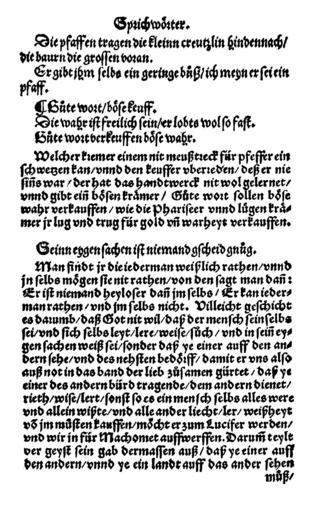 Sprichwörter.
Die pfaffen tragen die kleinn creutzlin hindennach/
die baurn die grossen voran.
Er gibt jhm selbs ein geringe büß/ ich meyn er sei ein
pfaff.
¶ Güte wort/ böse keuff.
Die wahr ist freilich sein/ er lobts wol so fast.
Güte wort verkeuffen böse wahr.
Welcher kremer einem nit meußtreck für pfeffer ein
schwetzen kan/ vnnd den keuffer vberieden/ deß er nie
siñs war/ der hat das handtwerck nit wol gelernet/
vnnd gibt eiñ bösen krämer/ Güte wort sollen böse
wahr verkauffen/ wie die Phariseer vnnd lügen krä-
mer jr lug vnd trug für gold vñ warheyt verkauffen.
Seinn eygen sachen ist niemand gscheid gnüg.
Man findt jr die iederman weißlich rathen/ vnnd
jn selbs mögen sie nit rathen/ von den sagt man dañ:
Er ist niemand heyloser dañ jm selbs/ Er kan ieder-
man rathen/ vnd jm selbs nicht. Villeicht geschicht
es darumb/ daß Got nit wil/ daß der mensch sein selbs
sei/ vnd sich selbs leyt/ lere/ weise/ süch/ vnd in seinẽ ey-
gen sachen weiß sei/ sonder daß ye einer auff den an-
dern sehe/ vnd des nehsten bedörff/ damit er vns also
auß not in das band der lieb zůsamen gürtet/ daß ye
einer des andern bürd tragende/ dem andern dienet/
rieth/ wise/ lert/ sonst so es ein mensch selbs alles were
vnd allein wißte/ vnd alle ander liecht/ ler/ weißheyt
võ jm müsten kauffen/ möcht er zum Lucifer werden/
vnd wir jn für Machomet auffwerffen. Darum̃ teylt
der geyst sein gab dermassen auß/ daß ye einer auff
den andern/ vnnd ye ein landt auff das ander sehen
müß/